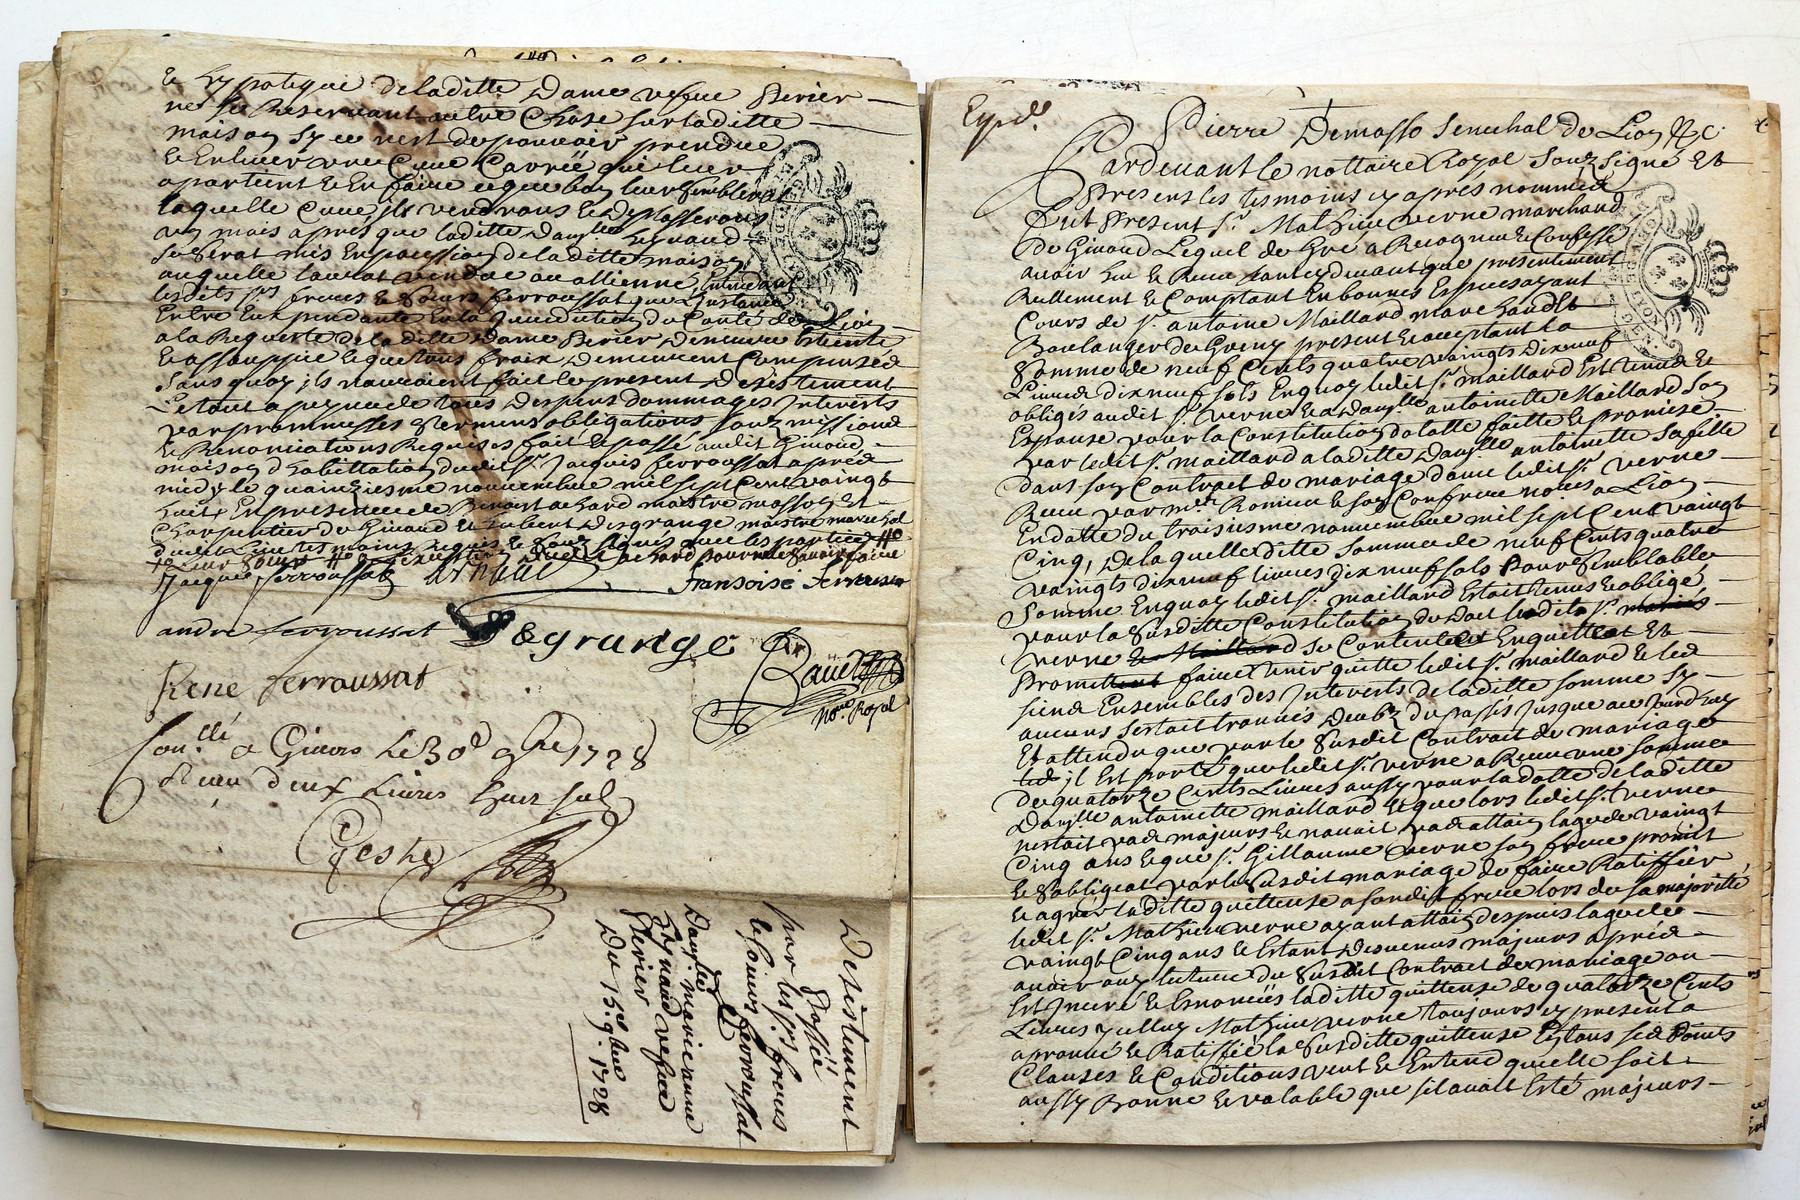 et hypotique deladitte Dame vefue Perier
ne se Reservant autre Chose sur laditte
maison sy ce nest de pouvoir prendre
et Enlever une Cuve Carrée qui leur
apartient et En faire ce que bon leur semblerat
laquelle Cuve ils vendrons et desplasserons
un mois apres que laditte Daulle Reynaud
se serat mis En possession deladitte maison
ou quelle laurat vendue ou alliennée, Entendant
lesdits Srs freres et soeurs ferroussat que Linstance
Entre Eux pendante En la Jurisdiction du Comté de Lion
a la Requette de laditte Dame Perier Demeure Esteinte
et assouppie et que tous fraix Demeurent Compensés
sans quoy ils nauroient fait le present Desistement
Le tout a peyne de tous Despens Dommages Interests
par prommesses sermens obligations soumissions
et Renonciations Requises fait et passé audit Givord
maison d'habittation dudit Sr. Jacques ferroussat aprés
midy le quinziesme novembre mil sept Cent vaingt
huit En presence de Benoit achard maistre masson et
Charpentier de Givord et Imbert Degrange maistre mareschal
dudit Lieu tesmoins Requis et Sousignés avec les parties
Jacque ferroussat arnaud fransoise ferroussat
andre ferroussat Degrange
Rene ferroussat
Bauet
Nore. Royal
Con.llé a Givors le 30e 9bre 1728
Receu deux Livres huit sols
Geshe
Desistement
Passée
par les srs freres
et soeurs ferroussat
a
Daulle marie anne
Reynaud vefue
Perier
Du 15e. 9bre 1728
Expéé.
Pierre Demasso Senechal de Lion &c.
Pardevant le nottaire Royal Sousigné Et
Presens les tesmoins cy aprés nommés
fut Present Sr. Mathieu verne marchand
De Givord Lequel de Gré a Recogneu et Confessé
avoir Eu et Receu tant cy devant que presentement
Reellement et Comptant En bonnes Especes ayant
Cours de Sr. antoine Maillard marchand et
Boulanger de Grviny present et acceptant La
Somme de neuf Cents quatre vaingts Dixneuf
Livres dixneuf sols Enquoy ledit Sr. maillard Est tenu et
obligés audit Sr. verne et a Daulle antoinette Maillard Son
Espouse pour la Constitution dotalle faitte et promise
par ledit Sr. maillard a laditte Daulle antoinette sa fille
dans son Contract de mariage d'avec ledit Sr. verne
Receu par mre. Romieu et son Confrere nores a Lion
En datte du troisiesme novembre mil sept Cent vaingt
Cinq, De laquelle ditte Somme de neuf Cents quatre
vaingts dixneuf livres dixneuf sols Pour semblable
Somme Enquoy ledit Sr. maillard Estoit tenus et obligé
pour la Susditte Constitution du Dot ledit Sr. mariés
verne et Maillard se Contentent Enquittent Et
Promettent faire tenir quitte ledit Sr. maillard et les
siens Ensembles des Interests de laditte Somme sy
aucuns sestoit trouvés deubz du passés Jusque aujourdhuy
Et attendu que par le Susdit Contract de mariage
led il Est porté que ledit Sr. verne a Receu une somme
de quatorze Cents Livres aussy pour la dotte de laditte
Daulle antoinette maillard et que lors ledit Sr. verne
nestoit pas majeurs et navait pas attain lage de vaingt
Cinq ans et que Sr. Gillaume verne son frere promit
et sobligeat par le Susdit mariage de faire Ratiffier
et agréer laditte quittense a sondit frere lors de sa majorité
ledit Sr. Mathieu verne ayant attain despuis lage de
vaingt Cinq ans et Estant Devenus majeurs aprés
avoir ouy lecture du Susdit Contract de mariage ou
Est Inceré et Enonciés laditte quittense de quatorze Cents
Livres yeelluy Mathieu verne toujours cy present a
aprouvé et Ratiffié la Susditte quittense En tous ses Points
Clauses et Conditions veut et Entend quelle soit
aussy Bonne et valable que sil avoit Esté majeurs